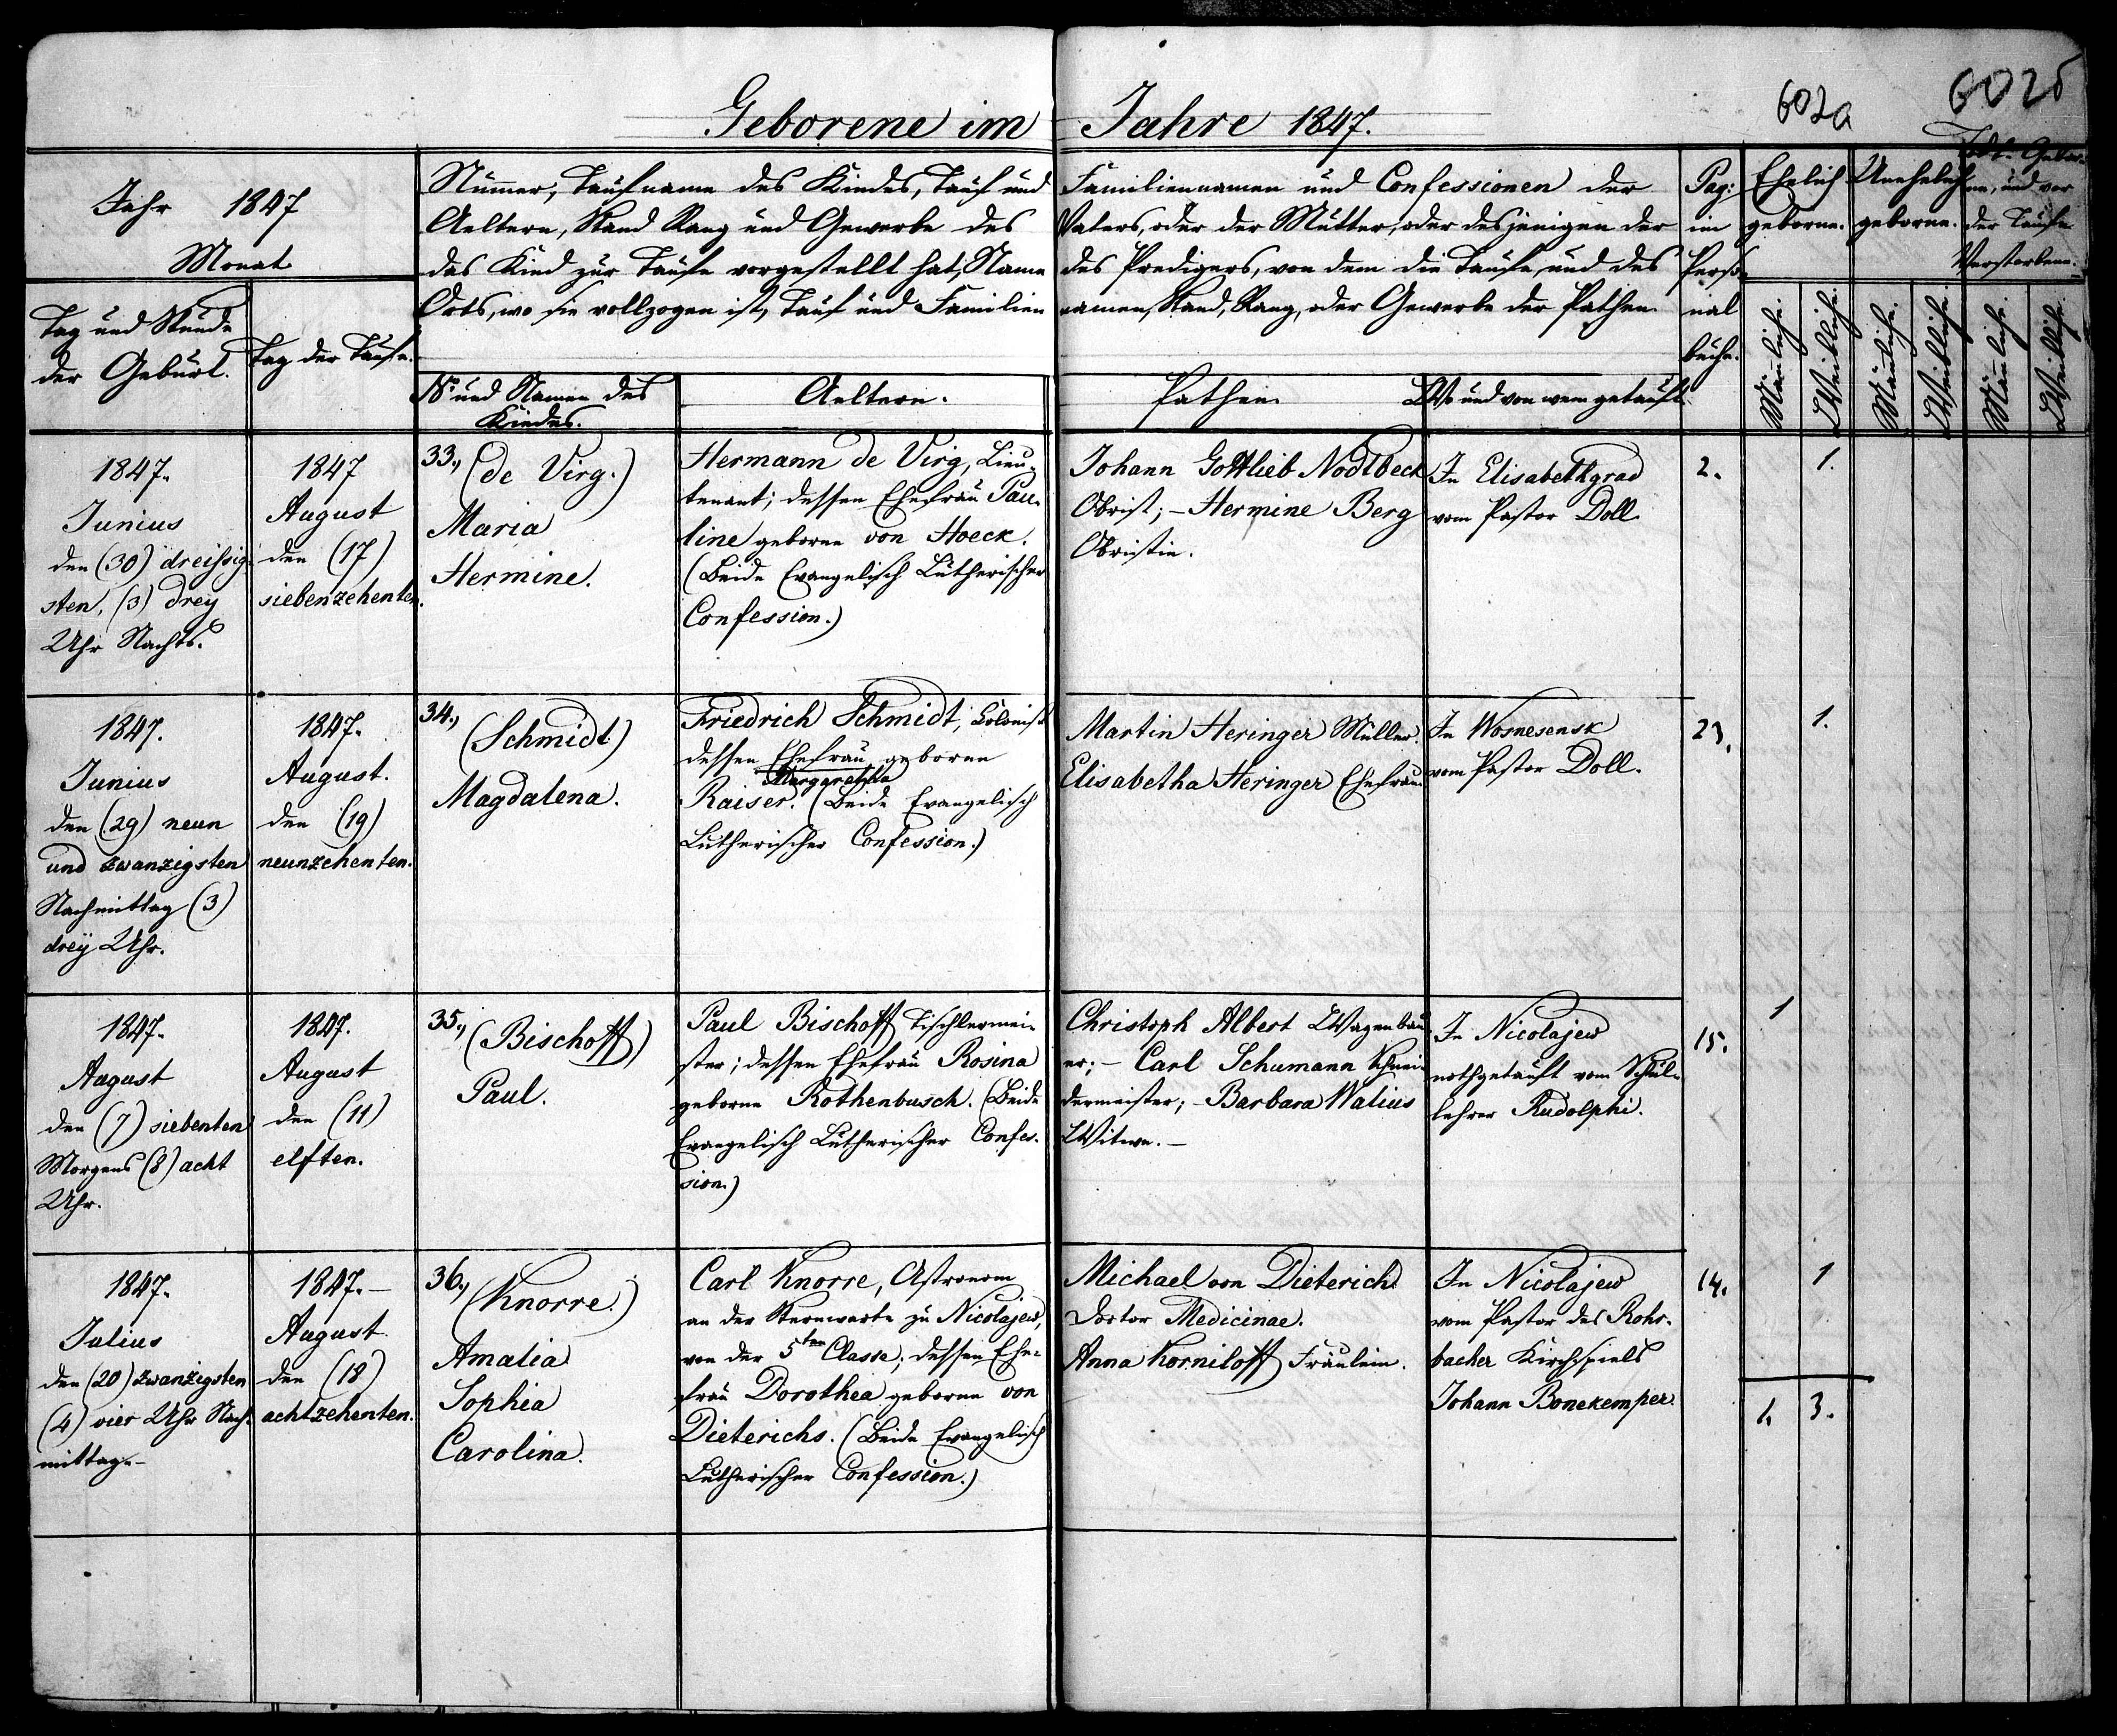 602a
6025
Geborene im Jahre 1847.
Jahr 1847
Monat
Tag und Stunde
der Geburt.
Tag der Taufe.
Numer, Taufname des Kindes, Tauf und Familiennamen und Confessionen der
Aeltern, Stand Rang und Gewerbe des Vaters, oder der Mutter, oder desjenigen der
das Kind zur Taufe vorgestellt hat, Name des Predigers, von dem die Taufe, und des
Orts, wo sie vollzogen ist, Tauf und Familien namen, Stand, Rang, oder Gewerbe der Pathen
No und Namen des
Kindes.
Aeltern.
Pathen
Wo und von wem getauft.
Pag:
im
Perso-
nal
buche.
Ehelich
geborne.
Unehelich
geborne.
Todt. Gebor-
ne, und vor
der Taufe
Verstorbene.
Mänliche.
Weibliche.
Mänliche.
Weibliche.
Mänliche.
Weibliche.
1847.
Junius
den (30) dreissig-
sten, (3) drey
Uhr Nachts.
1847
August
den (17)
siebenzehenten.
33., (de Virg.)
Maria
Hermine.
Hermann de Virg, Lieu-
tenant; dessen Ehefrau Pau-
line geborne von Hoeck.
(Beide Evangelisch Lutherischer
Confession.)
Johann Gottlieb Nodlbeck
Obrist; - Hermine Berg
Obristin.
In Elisabethgrad
vom Pastor Doll.
2.
1.
1847.
Junius
den (29) neun
und zwanzigsten
Nachmittag (3)
dreÿ Uhr.
1847.
August.
den (19)
neunzehenten.
34., (Schmidt)
Magdalena.
Friedrich Schmidt, Colonist
dessen Ehefrau geborne
Margaretha
Raiser. (Beide Evangelisch
Lutherischer Confession.)
Martin Heringer Müller.
Elisabetha Heringer Ehefrau
In Wosnesensk
vom Pastor Doll.
23.
1.
1847.
August
den (7) siebenten
Morgens (8) acht
Uhr.
1847.
August
den (11)
elften.
35., (Bischoff)
Paul.
Paul Bischoff Tischlermei-
ster; dessen Ehefrau Rosina
geborne Rothenbusch. (Beide
Evangelisch Lutherischer Confes-
sion.)
Christoph Albert Wagenbau
er; - Carl Schumann Schnei-
dermeister; - Barbara Walius
Witwe. -
In Nicolajew
nothgetauft vom Schul-
lehrer Rudolphi.
15.
1
1847.
Julius
den (20) zwanzigsten
(4) vier Uhr Nach-
mittag. -
1847. -
August
den (18)
achtzehenten.
36., (Knorre.)
Amalia
Sophia
Carolina.
Carl Knorre, Astronom
an der Sternwarte zu Nicolajew,
von der 5ten Classe; dessen Ehe-
frau Dorothea geborne von
Dieterichs. (Beide Evangelisch
Lutherischer Confession.)
Michael von Dieterichs
Doctor Medicinae.
Anna Korniloff Fräulein.
In Nicolajew
vom Pastor des Rohr-
bacher Kirchspiels
Johann Bonekemper.
14.
1
1. 3.